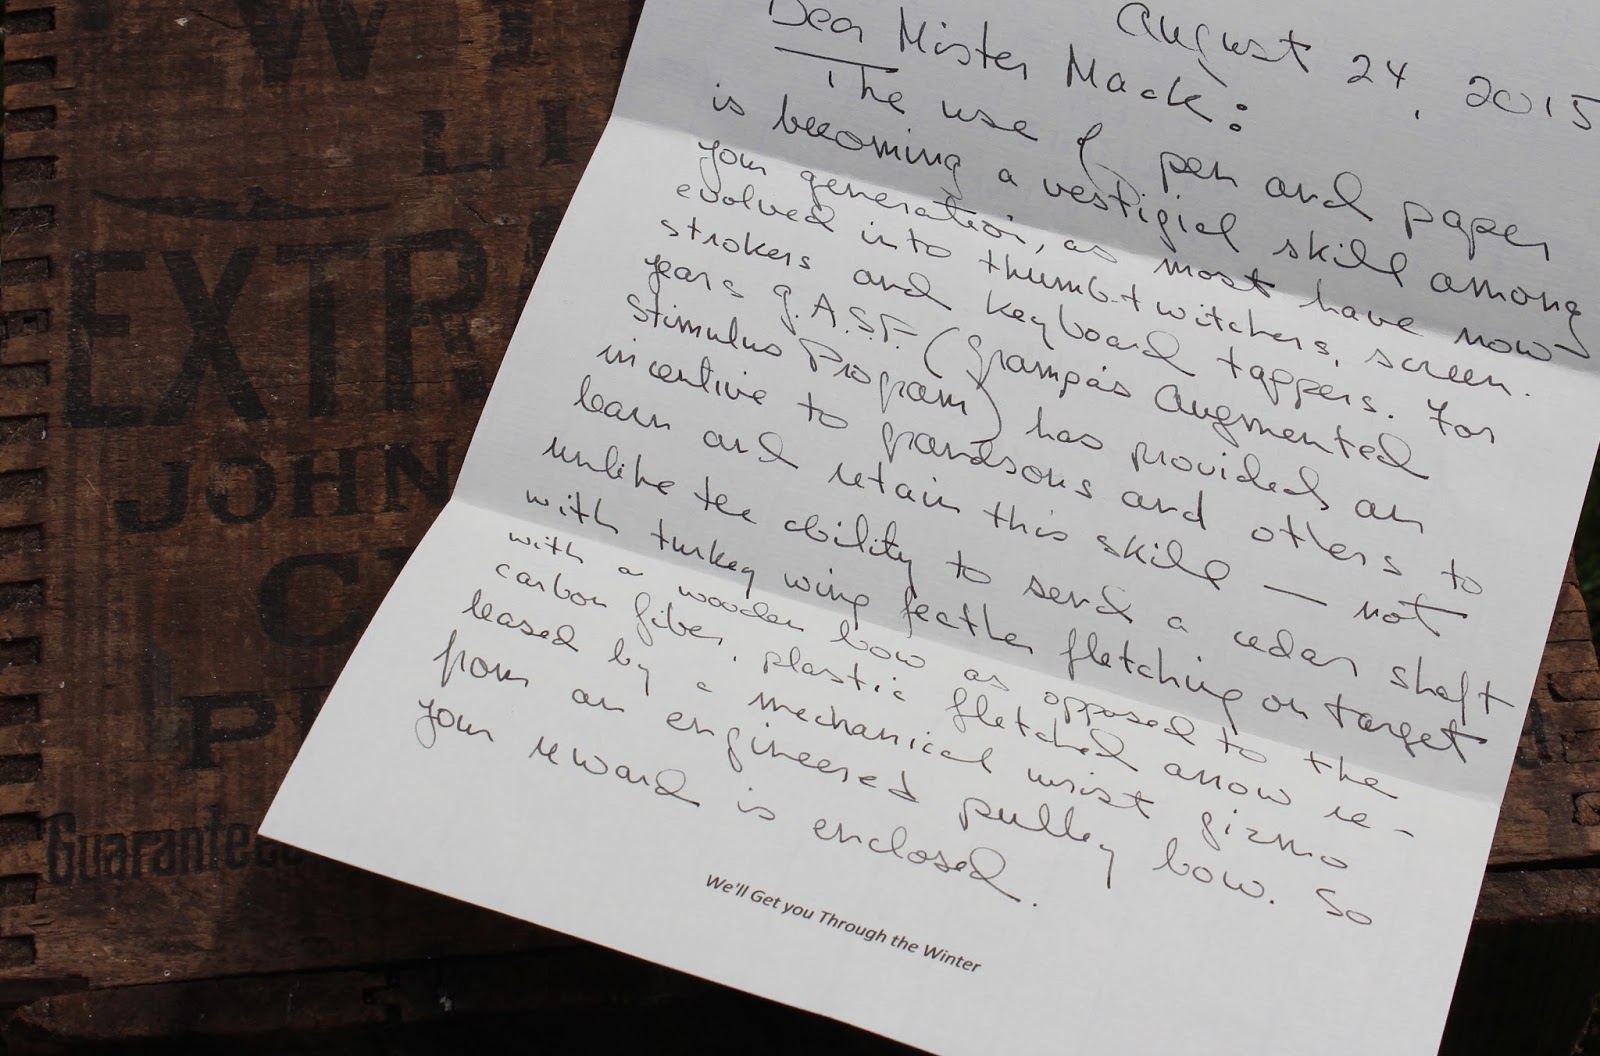 August 24, 2015
Dear Mister Mack:
The use of pen and paper
is becoming a vestigial skill among
your generation, as most have now
evolved into thumb-twitchers, screen
strokers and keyboard tappers. For
years G.A.S.P. (Grampa's Augmented
Stimulus Program) has provided an
incentive to grandsons and others to
learn and retain this skill — not
unlike the ability to send a cedar shaft
with turkey wing feather fletching on target
with a wooden bow as opposed to the
carbon fiber, plastic fletched arrow re-
leased by a mechanical wrist gizmo
from an engineered pulley bow. So
your reward is enclosed.
We'll Get you Through the Winter
W
LI
EXTR
JOHN
C
P
Guarantee